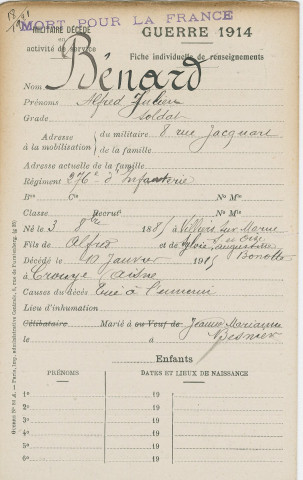 MORT POUR LA FRANCE
MILITAIRE DÉCÉDÉ
en
activité de service
GUERRE 1914
Fiche individuelle de renseignements
Nom Bénard
Prénoms Alfred Julien
Grade Soldat
Adresse à la mobilisation du militaire 8 rue Jacquard
de la famille
Adresse actuelle de la famille
Régiment 276e d'Infanterie
Bon Cie No Mle
Classe Recrut No Mle
Né le 3 8bre 1881 à Villiers sur Marne
S et Oise
Fils de Alfred et de Augustine
Bonotte
Décédé le 12 Janvier 1915
à Crouy Aisne
Causes du décès Tué à l'ennemi
Lieu d'inhumation
Célibataire Marié à ou Veuf de Jeanne
Besnier
le à
Enfants
PRÉNOMS DATES ET LIEUX DE NAISSANCE
1o 19
2o 19
3o 19
4o 19
5o 19
6o 19